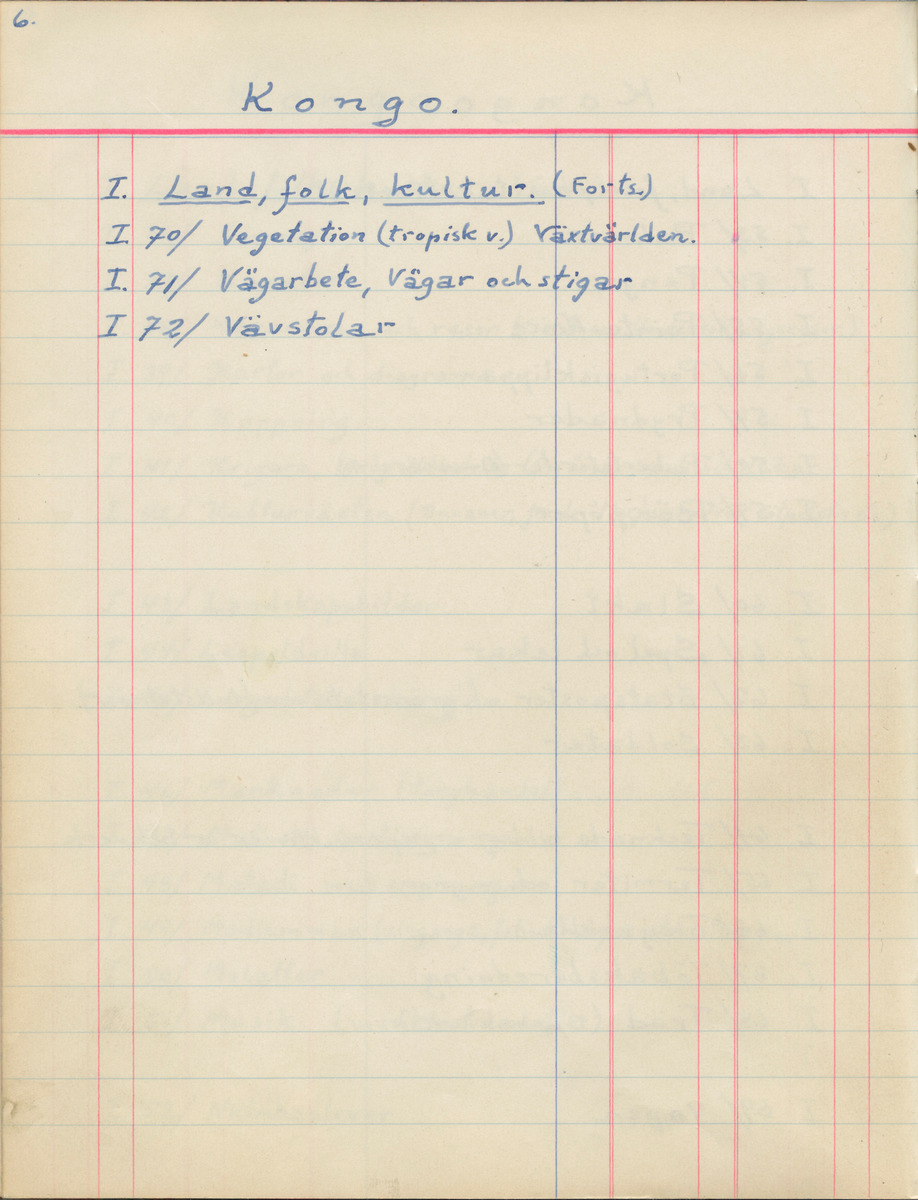 6.
Kongo.
I. Land, folk, kultur. (Forts.)
I. 70/ Vegetation (tropisk v.) Växtvärlden.
I. 71/ Vägarbete, Vägar och stigar
I 72/ Vävstolar